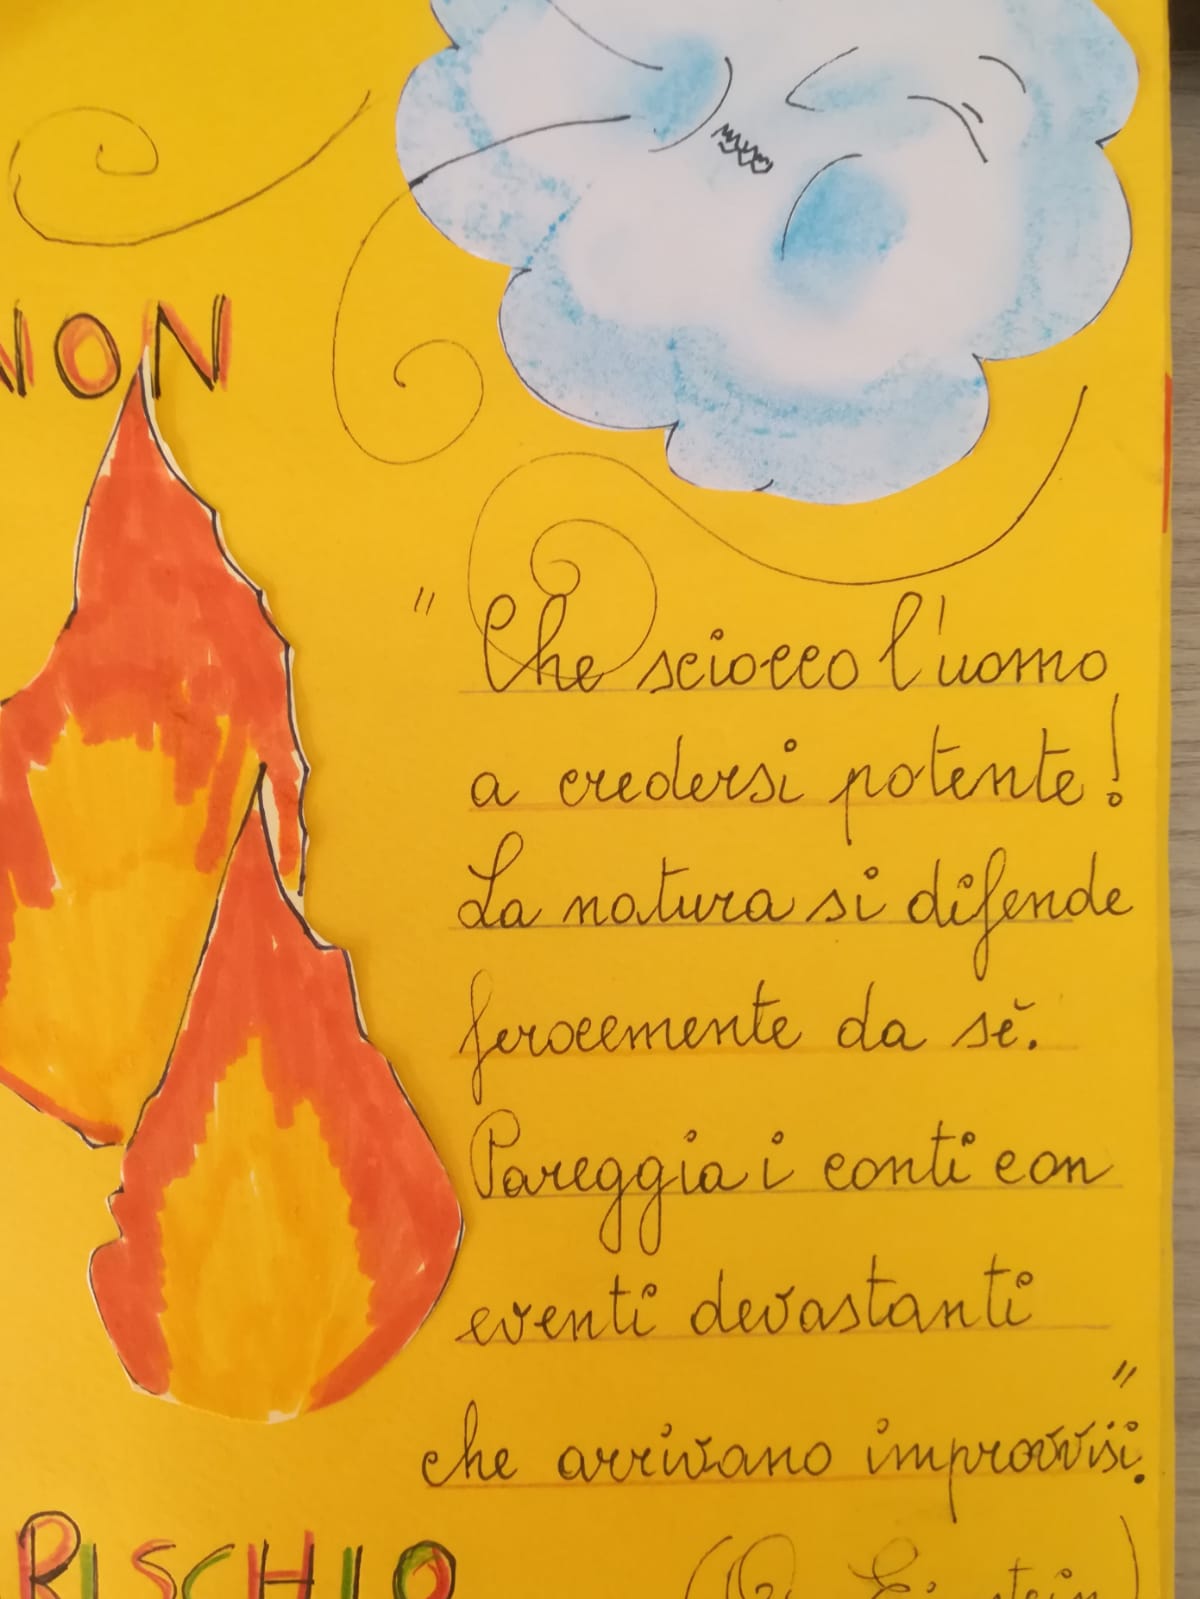 NON
" Che sciocco l'uomo
a credersi potente!
La natura si difende
ferocemente da sé.
Pareggia i conti con
eventi devastanti
che arrivano improvvisi."
RISCHIO